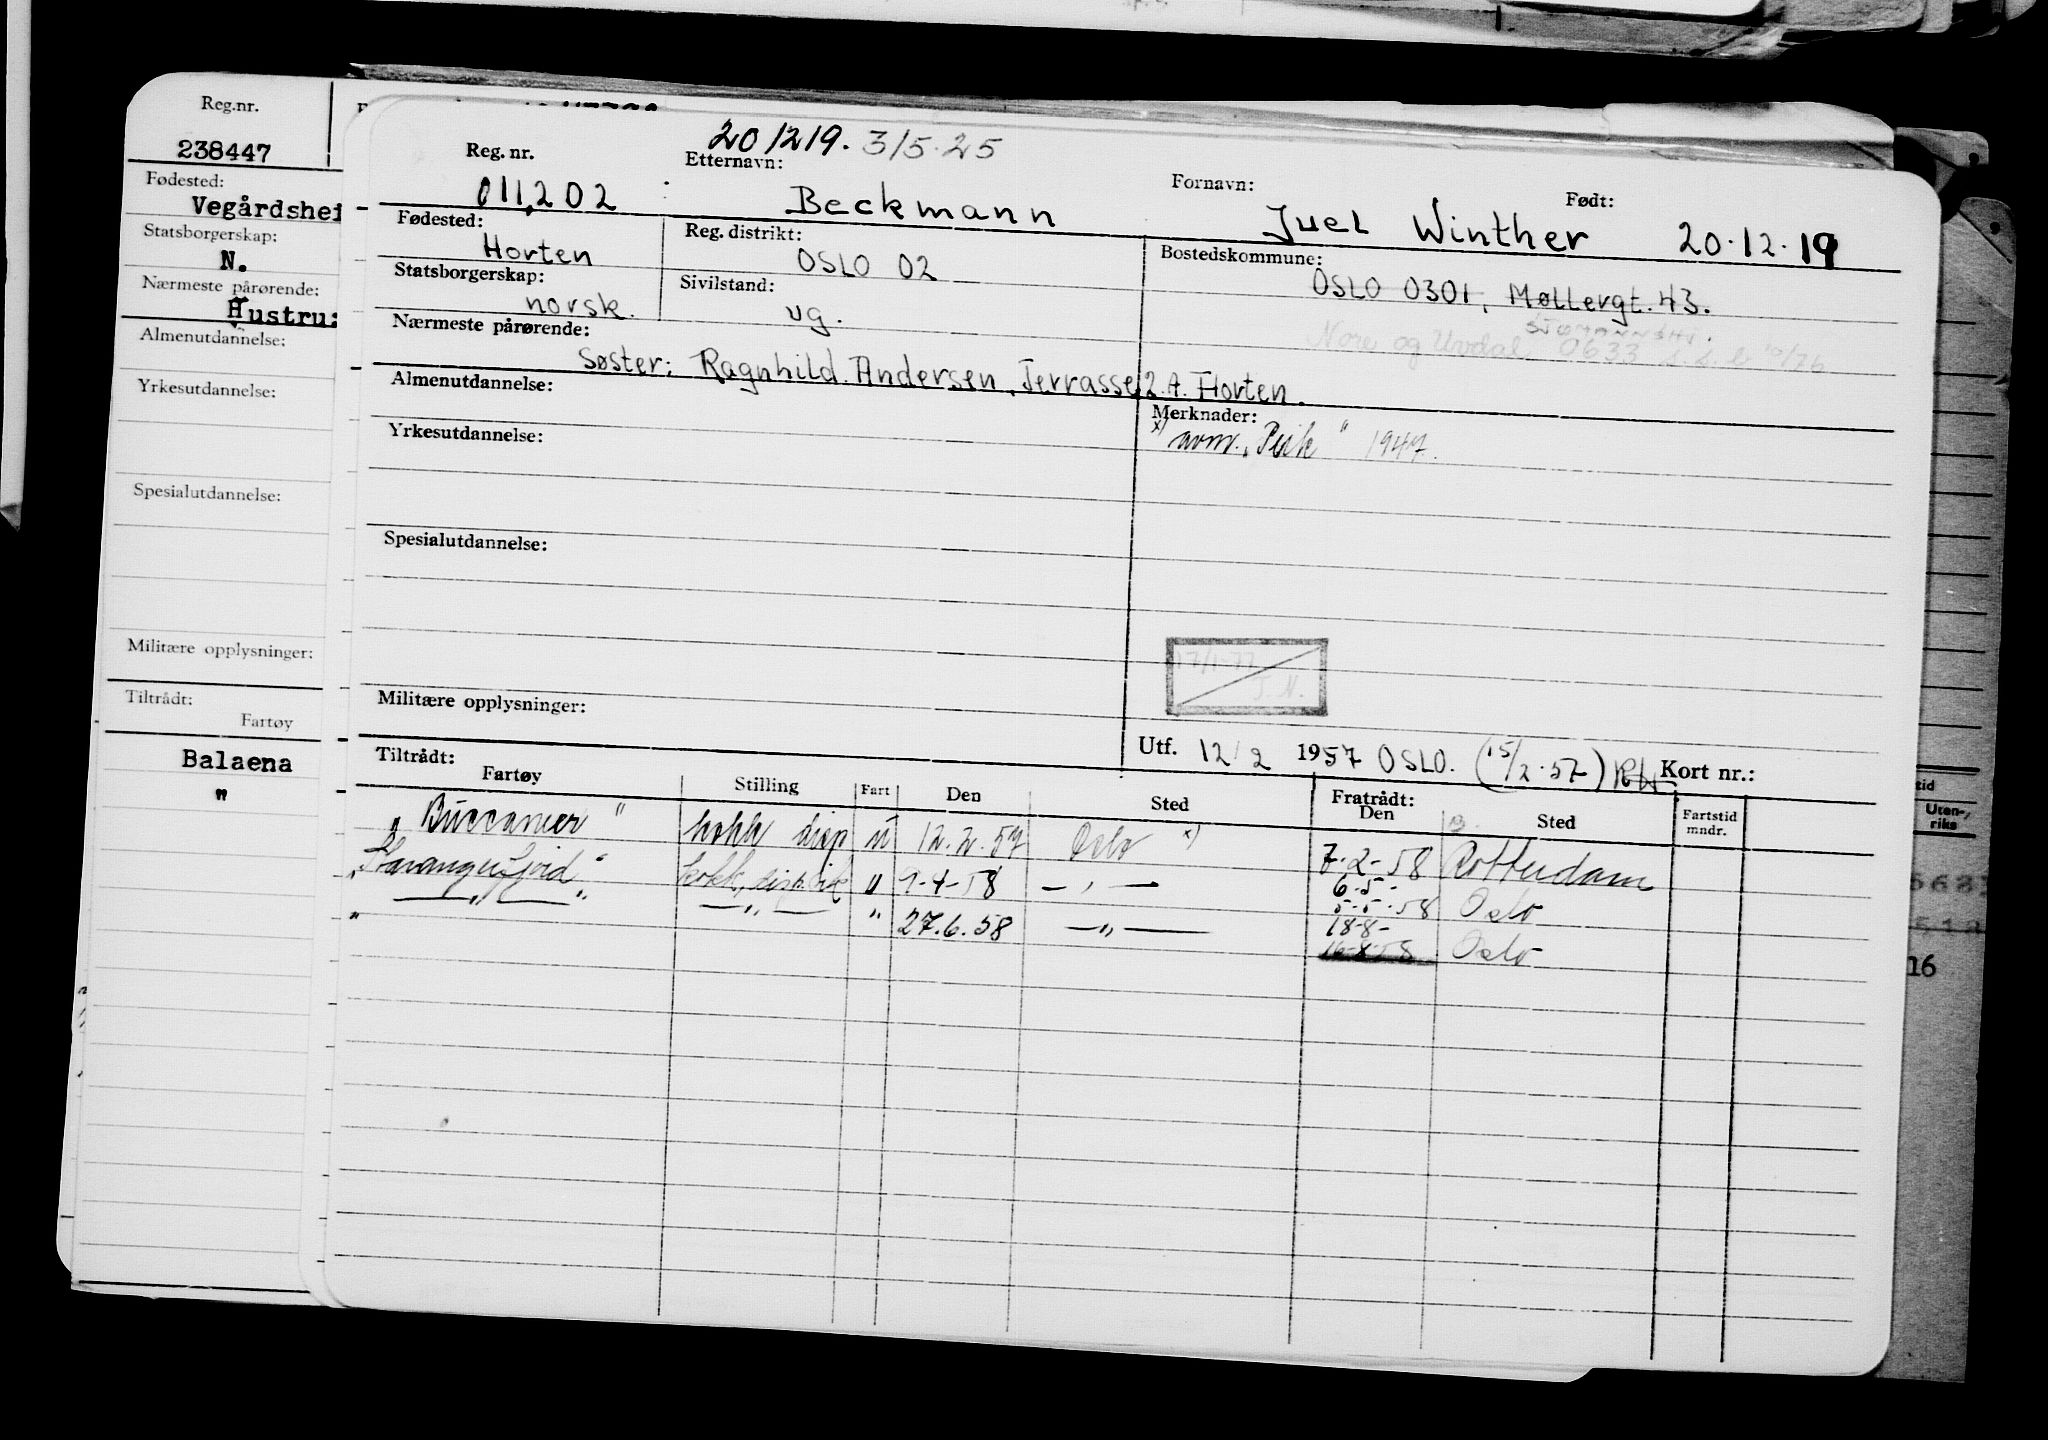 Reg.nr.
238447
Fødested:
Vegårdshei
Statsborgerskap:
N.
Nærmeste pårørende:
Hustru:
Almenutdannelse:
Yrkesutdannelse:
Spesialutdannelse:
Militære opplysninger:
Tiltrådt:
Fartøy
Balaena
"
201219. 315.25
Reg. nr. Etternavn: Fornavn: Født:
011,202 Beckmann Juel Winther 20.12.19
Fødested: Reg. distrikt: Bostedskommune:
Horten OSLO 02 OSLO 0301, Møllergt. 43.
Statsborgerskap: Sivilstand:
norsk. ug.
Nore og Uvdal, 0633 10/76
Nærmeste pårørende:
Søster: Ragnhild Andersen, Terrasse 2. A. Horten.
Almenutdannelse: Merknader:
x) "Peik" 1947.
Yrkesutdannelse:
Spesialutdannelse:
17/1-77
J. N.
Militære opplysninger:
Utf. 12/2 1957 OSLO. (15/2.57) Kort nr.:
Tiltrådt: Fratrådt:
Fartøy Stilling Fart Den Sted Den Sted Fartstid mndr.
"Buccaneer" kokk disp u 12.2.57 Oslo x) 7-2-58 Rotterdam
"Varangfjord" kokk, " 1-4-58 — " — 6.5- 5.5.58 Oslo
" — " — " — " — " 27.6.58 — " — 18-8- 16-8-58 Oslo
tid
Uten-
riks
16